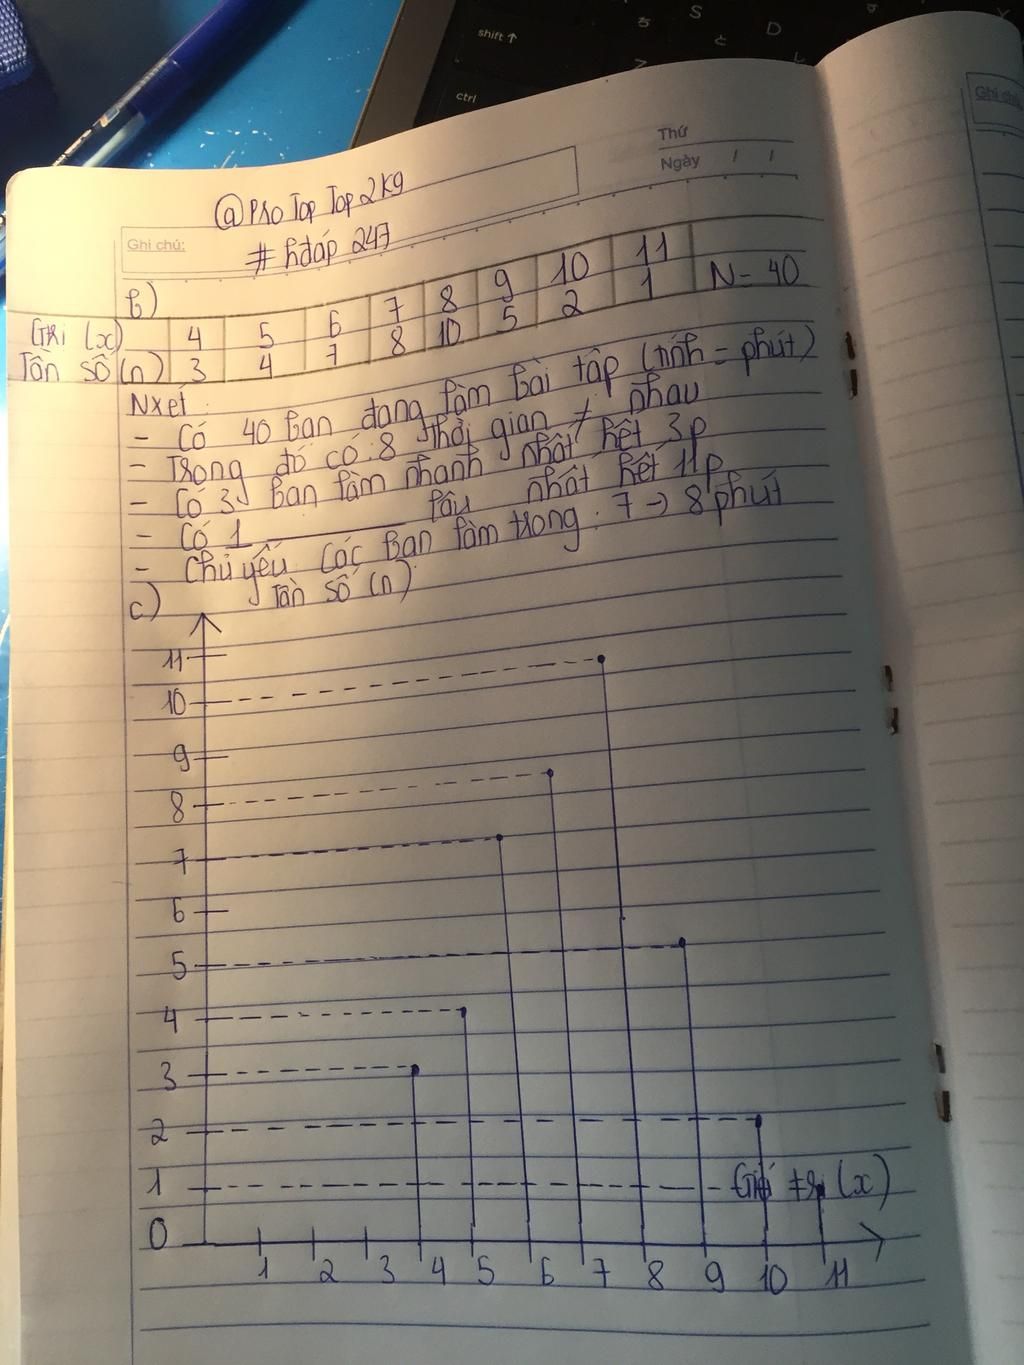 shift ↑
ctrl
S
D
Thứ
Ngày / /
Ghi chú:
@ Pro Top Top 2k9
# hđáp 247
b)
Gtri (x) 4 5 6 7 8 9 10 11 N = 40
Tần số (n) 3 4 7 8 10 5 2 1
Nxét:
- Có 40 bạn đang làm bài tập (tính = phút)
- Trong đó có: 8 thời gian ≠ nhau
- Có 3 bạn làm nhanh nhất hết 3p
- Có 1 ——— lâu nhất hết 11p
- Chủ yếu các bạn làm trong: 7 -> 8 phút
c)
Tần số (n)
11
10
9
8
7
6
5
4
3
2
1
Giá trị (x)
0
1 2 3 4 5 6 7 8 9 10 11